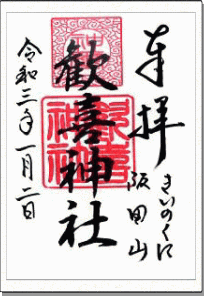 奉拝
きいのくに
阪田山
歓喜神社
令和三年一月二日